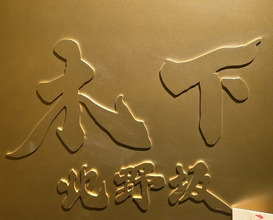 木下
北野坂